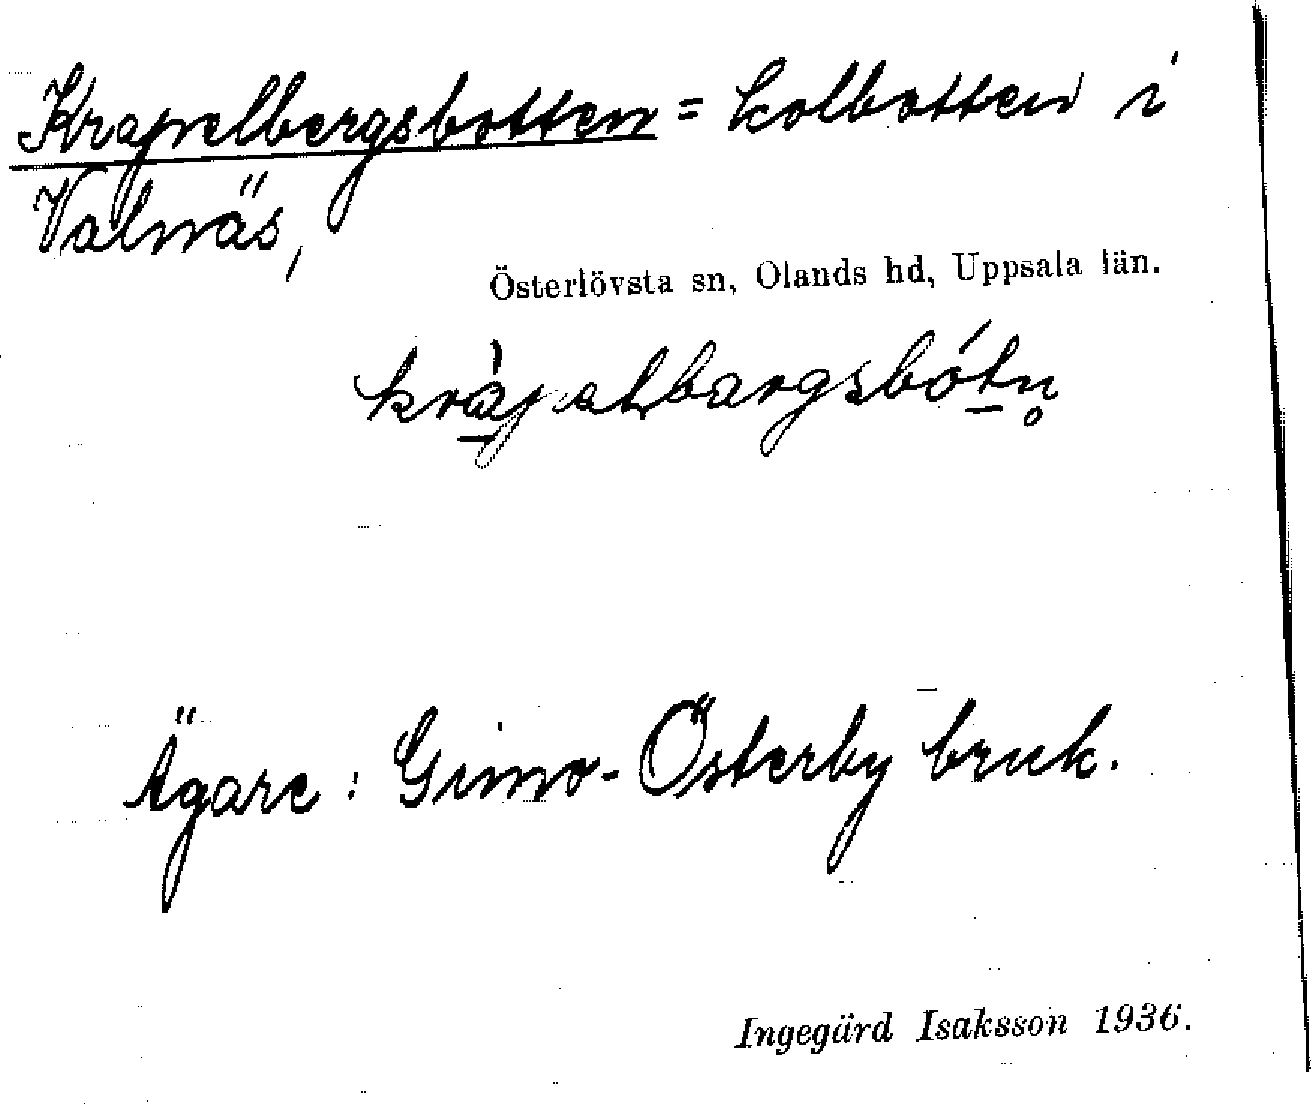 Krapelbergsbotten = kolbotten i
Valnäs,
Österlövsta sn, Olands hd, Uppsala län.
kràpəlbargsbótn̥
Ägare: Gimo-Österby bruk.
Ingegärd Isaksson 1936.